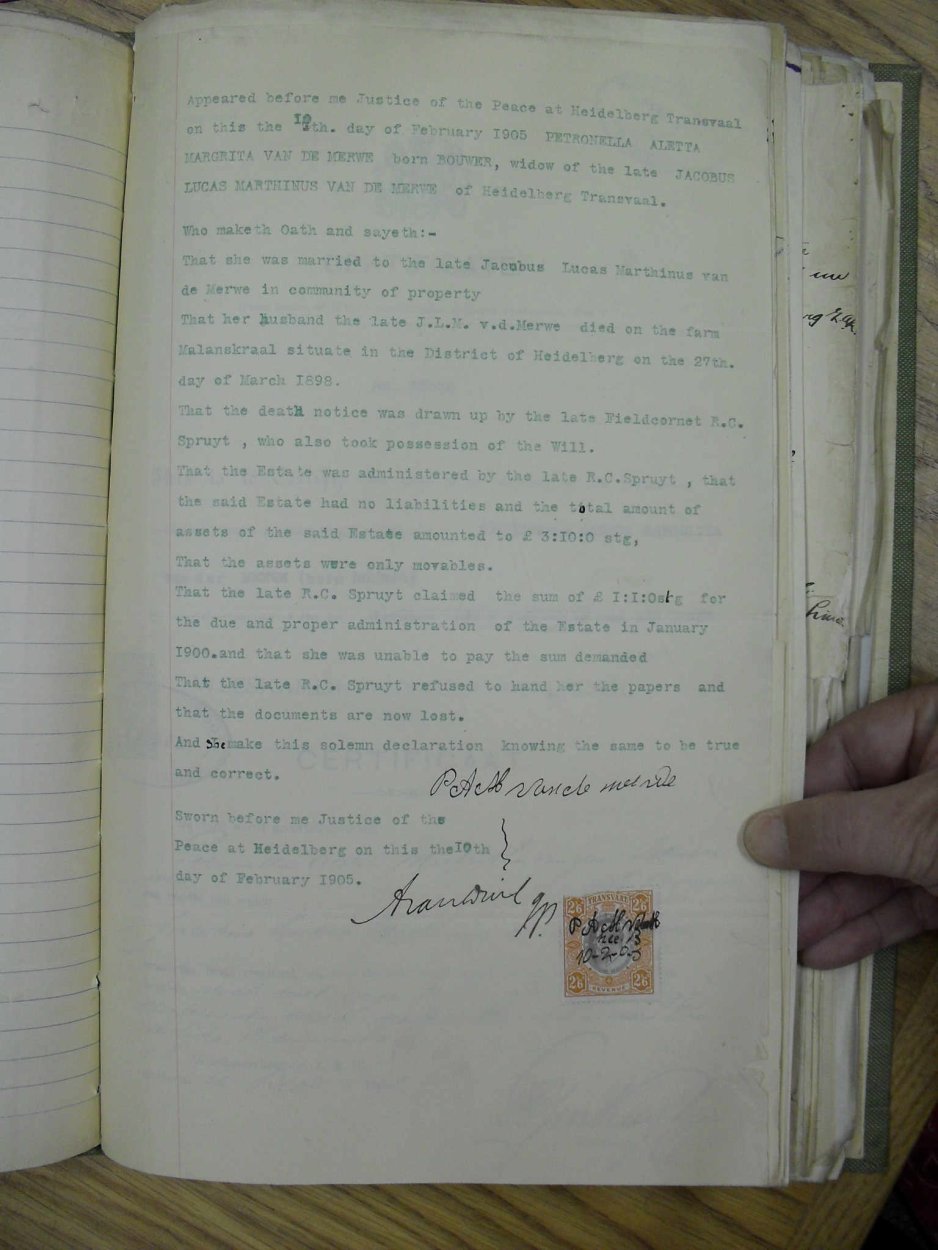 Appeared before me Justice of the Peace at Heidelberg Transvaal
on this the 10th. day of February 1905 PETRONELLA ALETTA
MARGRITA VAN DE MERWE born BOUWER, widow of the late JACOBUS
LUCAS MARTHINUS VAN DE MERWE of Heidelberg Transvaal.
Who maketh Oath and sayeth:-
That she was married to the late Jacobus Lucas Marthinus van
de Merwe in community of property
That her husband the late J.L.M. v.d.Merwe died on the farm
Malanskraal situate in the District of Heidelberg on the 27th.
day of March I898.
That the death notice was drawn up by the late Fieldcornet R.C.
Spruyt , who also took possession of the Will.
That the Estate was administered by the late R.C.Spruyt , that
the said Estate had no liabilities and the total amount of
assets of the said Estate amounted to £ 3:I0:0 stg,
That the assets were only movables.
That the late R.C. Spruyt claimed the sum of £ I:I:0stg for
the due and proper administration of the Estate in January
I900.and that she was unable to pay the sum demanded
That the late R.C. Spruyt refused to hand her the papers and
that the documents are now lost.
And She make this solemn declaration knowing the same to be true
and correct.
P A M van de merwe
Sworn before me Justice of the
Peace at Heidelberg on this theI0th
day of February I905.
JP.
TRANSVAAL
2/6 2/6
P A M
10-2-05
2/6 2/6
REVENUE
CERTIFICAAT